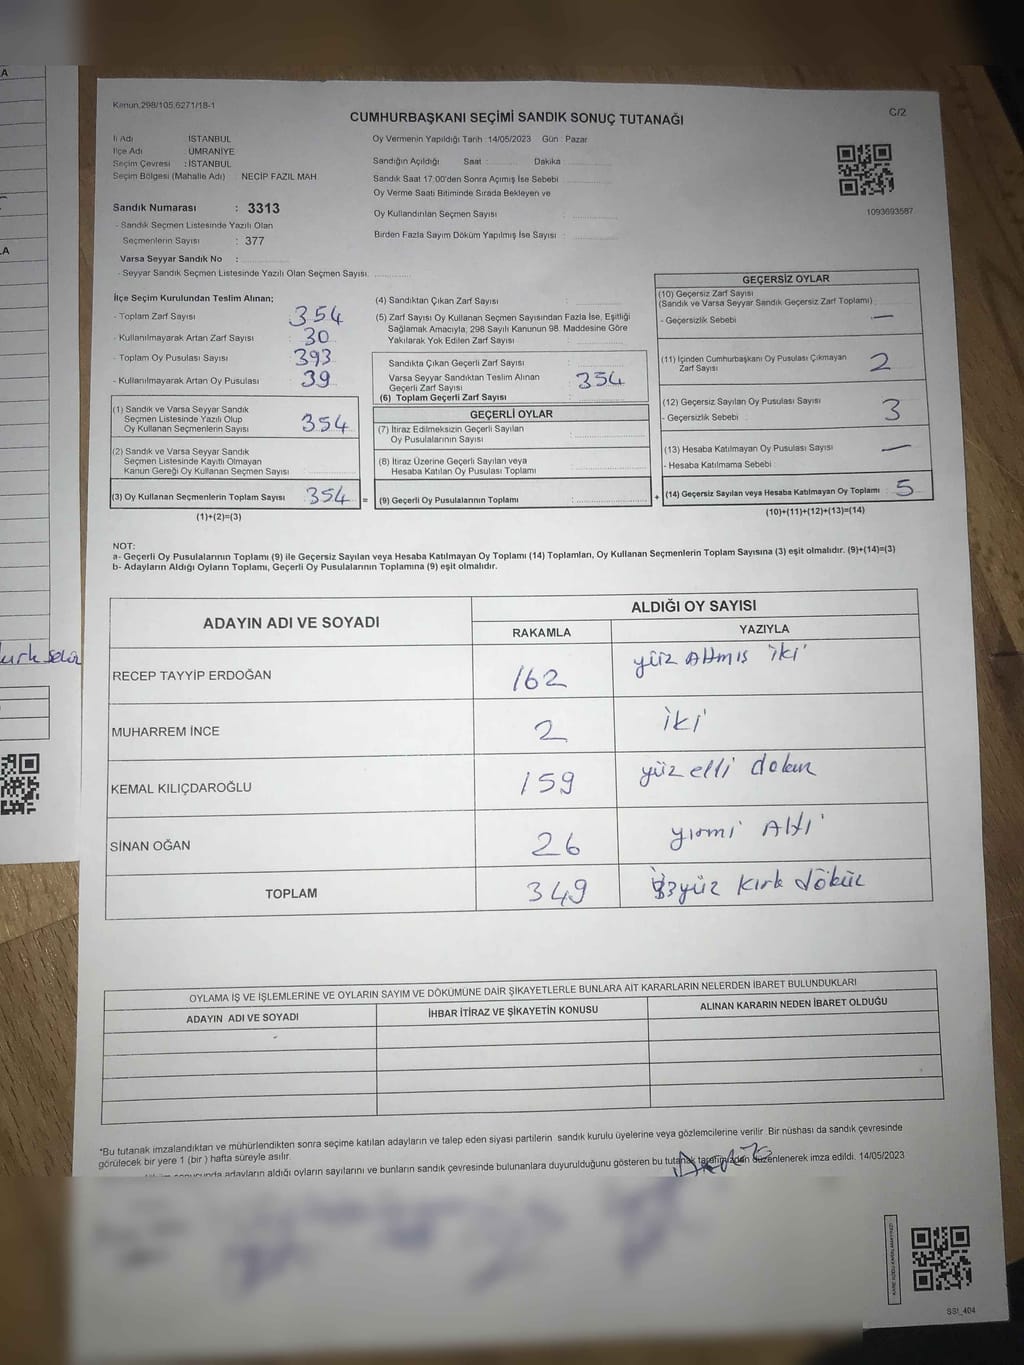 Kanun,298/105,6271/18-1
C/2
CUMHURBAŞKANI SEÇİMİ SANDIK SONUÇ TUTANAĞI
İl Adı İSTANBUL
İlçe Adı : ÜMRANİYE
Seçim Çevresi : İSTANBUL
Seçim Bölgesi (Mahalle Adı) : NECİP FAZIL MAH.
Sandık Numarası : 3313
- Sandık Seçmen Listesinde Yazılı Olan
Seçmenlerin Sayısı : 377
Varsa Seyyar Sandık No :
- Seyyar Sandık Seçmen Listesinde Yazılı Olan Seçmen Sayısı
Oy Vermenin Yapıldığı Tarih : 14/05/2023 Gün : Pazar
Sandığın Açıldığı Saat : Dakika
Sandık Saat 17:00'den Sonra Açımış İse Sebebi
Oy Verme Saati Bitiminde Sırada Bekleyen ve
Oy Kullandırılan Seçmen Sayısı :
Birden Fazla Sayım Döküm Yapılmış İse Sayısı :
1093693587
İlçe Seçim Kurulundan Teslim Alınan;
- Toplam Zarf Sayısı 354
- Kullanılmayarak Artan Zarf Sayısı 30
- Toplam Oy Pusulası Sayısı 393
- Kullanılmayarak Artan Oy Pusulası 39
(1) Sandık ve Varsa Seyyar Sandık
Seçmen Listesinde Yazılı Olup
Oy Kullanan Seçmenlerin Sayısı 354
(2) Sandık ve Varsa Seyyar Sandık
Seçmen Listesinde Kayıtlı Olmayan
Kanun Gereği Oy Kullanan Seçmen Sayısı
(3) Oy Kullanan Seçmenlerin Toplam Sayısı 354 =
(1)+(2)=(3)
(4) Sandıktan Çıkan Zarf Sayısı :
(5) Zarf Sayısı Oy Kullanan Seçmen Sayısından Fazla İse, Eşitliği
Sağlamak Amacıyla, 298 Sayılı Kanunun 98. Maddesine Göre
Yakılarak Yok Edilen Zarf Sayısı :
Sandıkta Çıkan Geçerli Zarf Sayısı
Varsa Seyyar Sandıktan Teslim Alınan
Geçerli Zarf Sayısı
(6) Toplam Geçerli Zarf Sayısı : 354
GEÇERLİ OYLAR
(7) İtiraz Edilmeksizin Geçerli Sayılan
Oy Pusulalarının Sayısı :
(8) İtiraz Üzerine Geçerli Sayılan veya
Hesaba Katılan Oy Pusulası Toplamı :
(9) Geçerli Oy Pusulalarının Toplamı : +
GEÇERSİZ OYLAR
(10) Geçersiz Zarf Sayısı
(Sandık ve Varsa Seyyar Sandık Geçersiz Zarf Toplamı)
- Geçersizlik Sebebi —
(11) İçinden Cumhurbaşkanı Oy Pusulası Çıkmayan
Zarf Sayısı 2
(12) Geçersiz Sayılan Oy Pusulası Sayısı
- Geçersizlik Sebebi 3
(13) Hesaba Katılmayan Oy Pusulası Sayısı —
- Hesaba Katılmama Sebebi
(14) Geçersiz Sayılan veya Hesaba Katılmayan Oy Toplamı 5
(10)+(11)+(12)+(13)=(14)
NOT:
a- Geçerli Oy Pusulalarının Toplamı (9) ile Geçersiz Sayılan veya Hesaba Katılmayan Oy Toplamı (14) Toplamları, Oy Kullanan Seçmenlerin Toplam Sayısına (3) eşit olmalıdır. (9)+(14)=(3)
b- Adayların Aldığı Oyların Toplamı, Geçerli Oy Pusulalarının Toplamına (9) eşit olmalıdır.
ADAYIN ADI VE SOYADI ALDIĞI OY SAYISI
RAKAMLA YAZIYLA
RECEP TAYYİP ERDOĞAN 162 yüz Altmış iki
MUHARREM İNCE 2 iki
KEMAL KILIÇDAROĞLU 159 yüz elli dokuz
SİNAN OĞAN 26 yirmi Altı
TOPLAM 349 üçyüz kırk dokuz
OYLAMA İŞ VE İŞLEMLERİNE VE OYLARIN SAYIM VE DÖKÜMÜNE DAİR ŞİKAYETLERLE BUNLARA AİT KARARLARIN NELERDEN İBARET BULUNDUKLARI
ADAYIN ADI VE SOYADI İHBAR İTİRAZ VE ŞİKAYETİN KONUSU ALINAN KARARIN NEDEN İBARET OLDUĞU
*Bu tutanak imzalandıktan ve mühürlendikten sonra seçime katılan adayların ve talep eden siyasi partilerin sandık kurulu üyelerine veya gözlemcilerine verilir. Bir nüshası da sandık çevresinde
görülecek bir yere 1 (bir ) hafta süreyle asılır.
sonucunda adayların aldığı oyların sayılarını ve bunların sandık çevresinde bulunanlara duyurulduğunu gösteren bu tutanak tarafımızdan düzenlenerek imza edildi. 14/05/2023
SSI_404